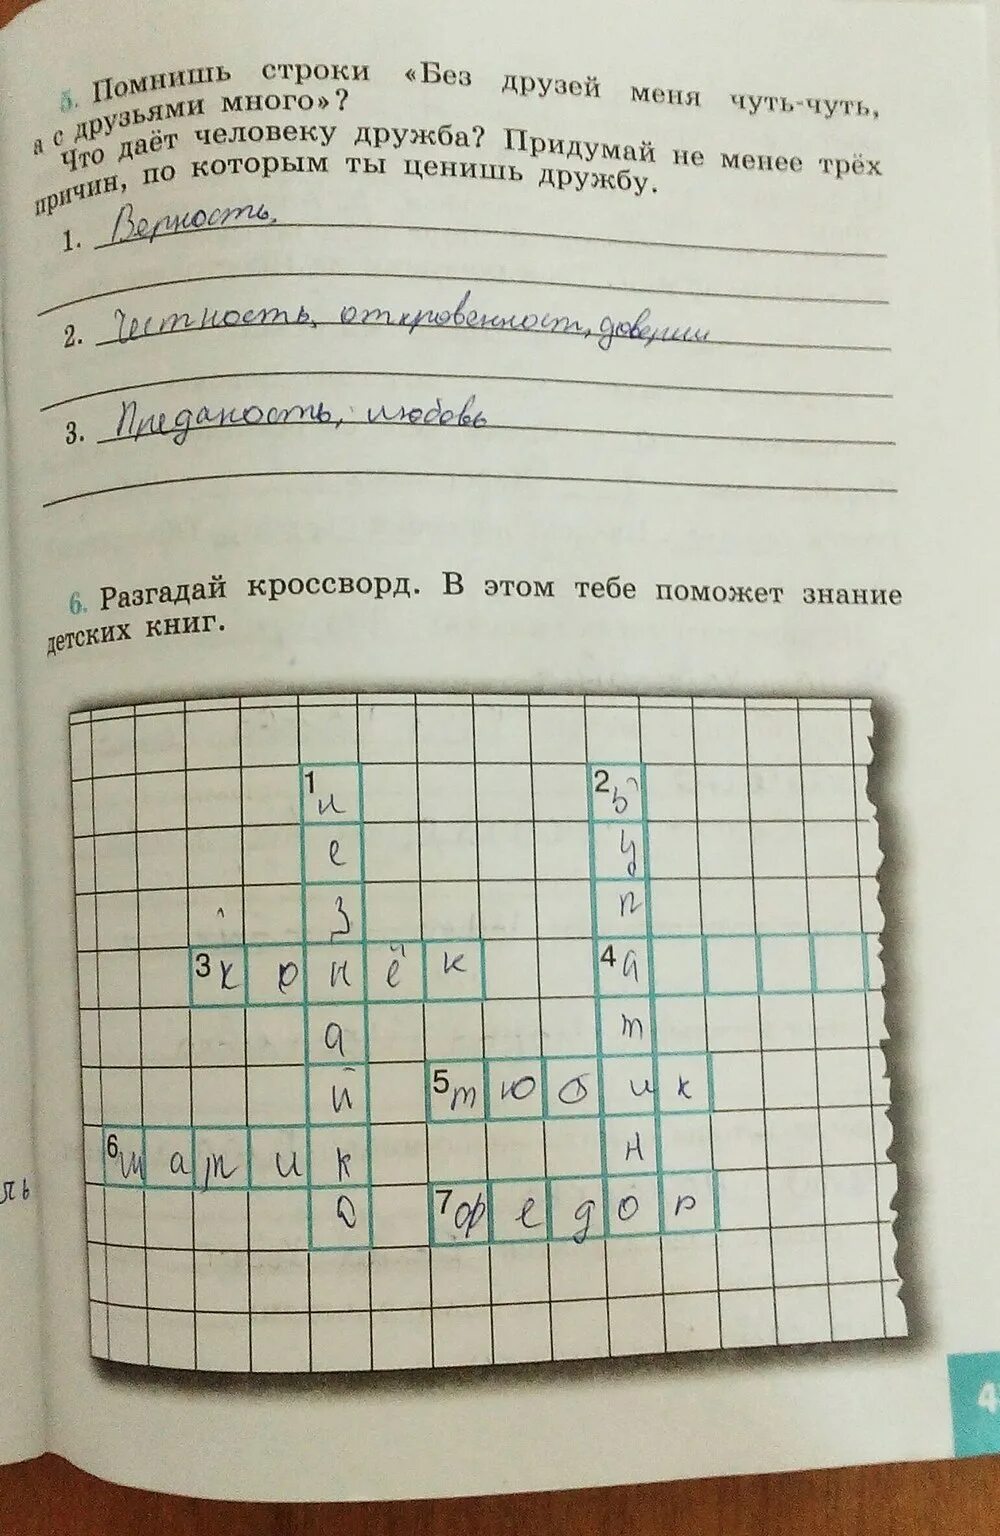 5. Помнишь строки «Без друзей меня чуть-чуть,
а с друзьями много»?
Что даёт человеку дружба? Придумай не менее трёх
причин, по которым ты ценишь дружбу.
1. Верность,
2. Честность, откровенност, доверии
3. Преданость, любовь
6. Разгадай кроссворд. В этом тебе поможет знание
детских книг.
1 н 2 Б
е у
з п
3 к о н ё к 4 а
а т
й 5 т ю б и к
6 м а т и к н
о 7 ф е д о р
ль
4